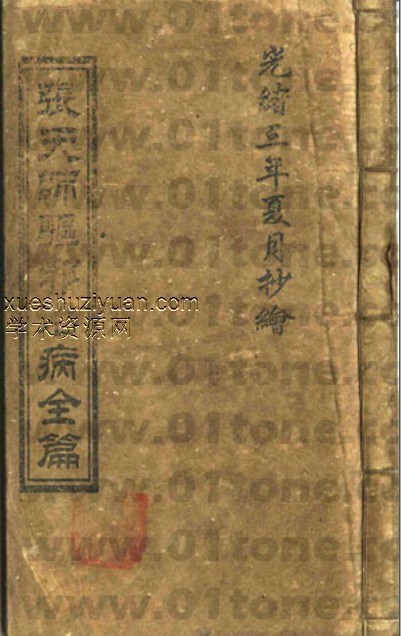 光緒三年夏月抄繪
張天師驅病全篇
xueshuziyuan.com
学术资源网
www.01tone.com